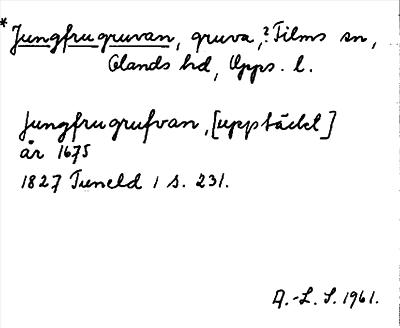 *Jungfrugruvan, gruva, ? Films sn,
Olands hd, Upps. l.
Jungfrugrufvan, [upptäckt]
år 1675
1827 Tuneld 1 s. 231.
A.-L. S. 1961.